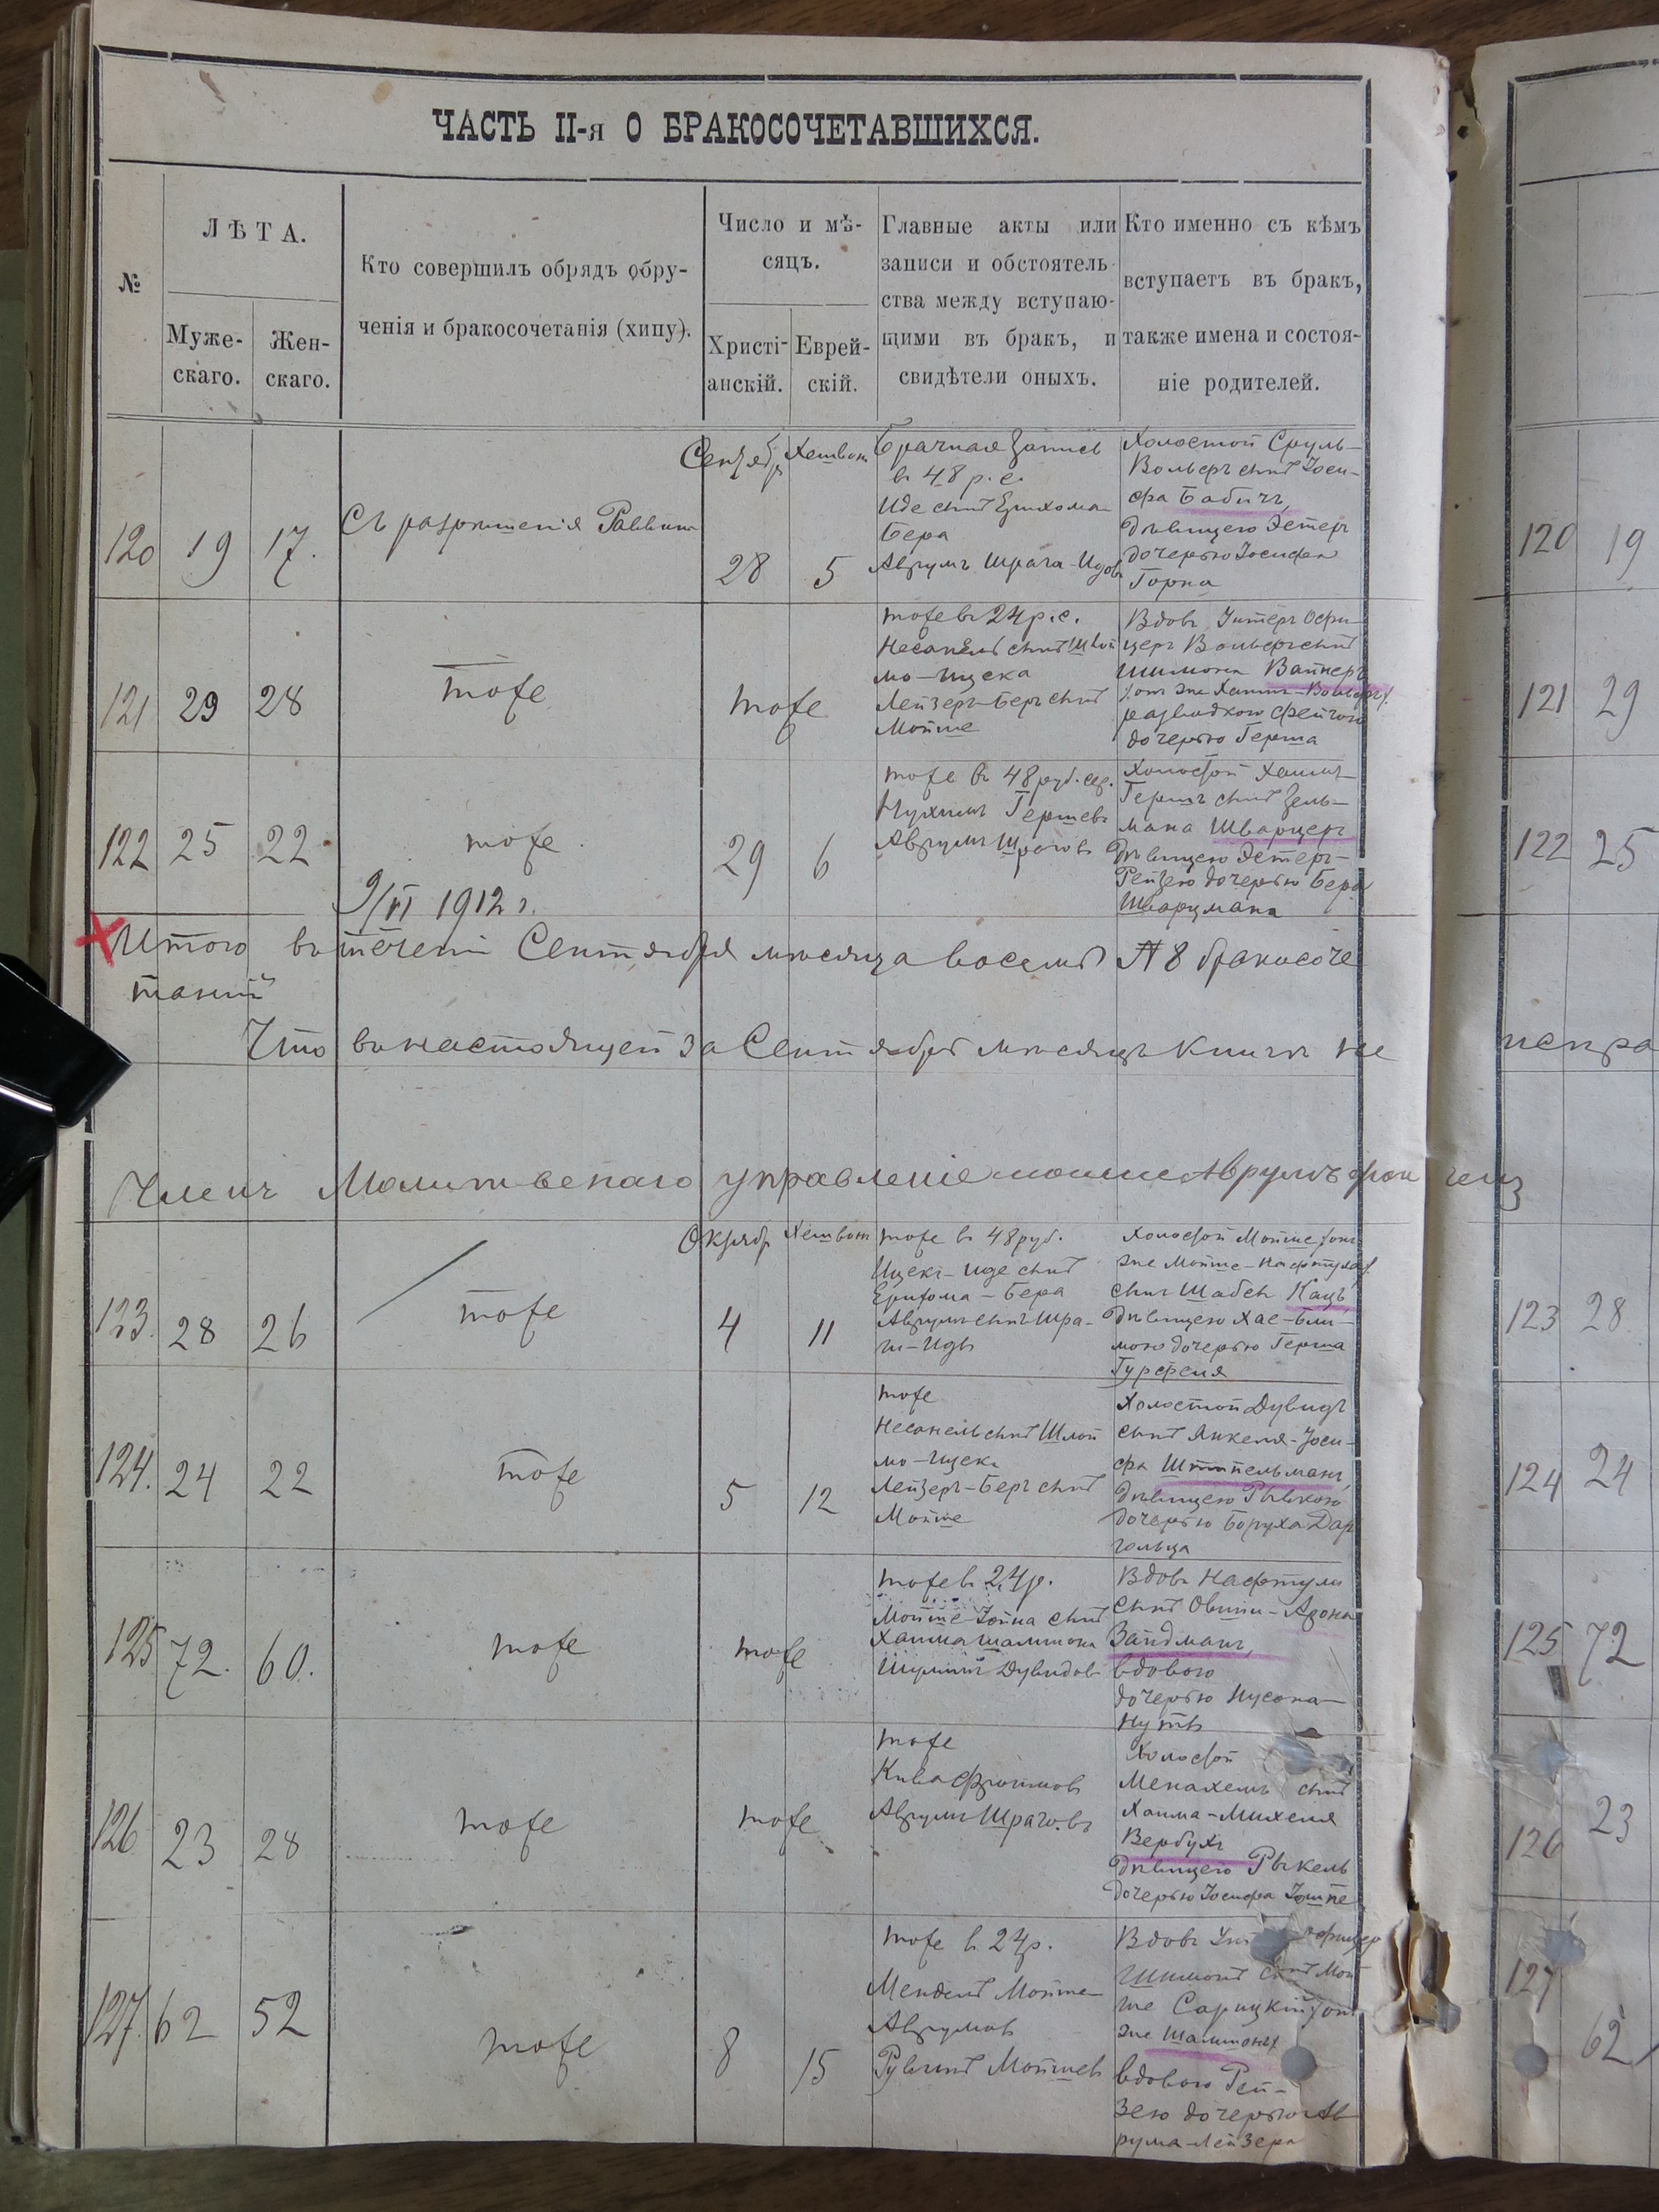 ЧАСТЬ II-я О БРАКОСОЧЕТАВШИХСЯ.
№
ЛѢТА.
Муже-
скаго.
Жен-
скаго.
Кто совершилъ обрядъ обру-
ченія и бракосочетанія (хипу).
Число и мѣ-
сяцъ.
Христі-
анскій.
Еврей-
скій.
Главные акты или
записи и обстоятель-
ства между вступаю-
щими въ бракъ, и
свидѣтели оныхъ.
Кто именно съ кѣмъ
вступаетъ въ бракъ,
также имена и состоя-
ніе родителей.
120
19
17.
Съ разрѣшенія Раввина
Сентябр
28
Хешвон
5
Брачная запись
в 48 р. с.
Иде сынъ
Бера
Аврумъ Шрага-Идов
Холостой Сруль-
Вольфъ сынъ Іоси-
фа Бабичъ,
дѣвицею Эстеръ
дочерью Іосифа
Горна
121
29
28
тоже
тоже
тоже въ 24 р. с.
Несанель сынъ Шлой
мо-Ицека
Лейзеръ-Беръ сынъ
Мойше
Вдовъ Унтеръ Офи-
церъ Вольфъ сынъ
Шимона Вайнеръ
/онъ же Хаимъ-Вольфъ/
разводкою Фейгою
дочерью Герша
122
25
22
тоже
29
6
тоже въ 48 руб. сер.
Нухимъ Гершевъ
Аврумъ Шраговъ
Холостой Хаимъ
Гершъ сынъ Зель-
мана Шварцеръ
дѣвицею Эстеръ-
Рейзею дочерью Бера
Шварцмана
9/VI 1912 г.
Итого въ теченіи Сентября мѣсяца восемь № 8 бракосоче
таній
Что въ настоящей за Сентябрь мѣсяцъ книгѣ не
Членъ Молитвенаго управленіе мошше Аврумъ
123.
28
26
тоже
Октябр
4
Хешвон
11
тоже въ 48 руб.
Ицекъ-Иде сынъ
Ерихома-Бера
Аврумъ сынъ Шра-
Холостой Мойше /онъ
же Мойше-Нафтула/
сынъ Шабси Кацъ
дѣвицею Хае-Бли-
мою дочерью Герша
Гурфеля
124.
24
22
тоже
5
12
тоже
Несанель сынъ Шлой
мо-Ицека
Лейзеръ-Беръ сынъ
Мойше
Холостой Дувидъ
сынъ Янкеля-Іоси-
фа Штительманъ,
дѣвицею Рывкою
дочерью Боруха Дар
гольца
125
72.
60.
тоже
тоже
тоже въ 24 р.
Мойше-Іойна сынъ
Хаима Шалимона
Дувидов
Вдовъ Нафтули
сынъ Овшии-Арона
Зайдманъ,
вдовою
дочерью Нусона-
Нутъ
126
23
28
тоже
тоже
тоже
Кива Фроимовъ
Аврумъ Шраговъ
Холостой
Менахемъ сынъ
Хаима-Михеля
Вербухъ
дѣвицею Рыкель
дочерью Іосифа
127.
62
52
тоже
8
15
тоже въ 24 р.
Мендель Мойше-
Аврумов
Рувинъ Мойшевъ
Вдовъ
Шимонъ сынъ Мой
ше Сарицкій /он
же Шалимонъ/
вдовою Рей-
зею дочерью Ав
рума-Лейзера
120 19
121 29
122 25
испра
123 28
124 24
125 72
126 23
127 62